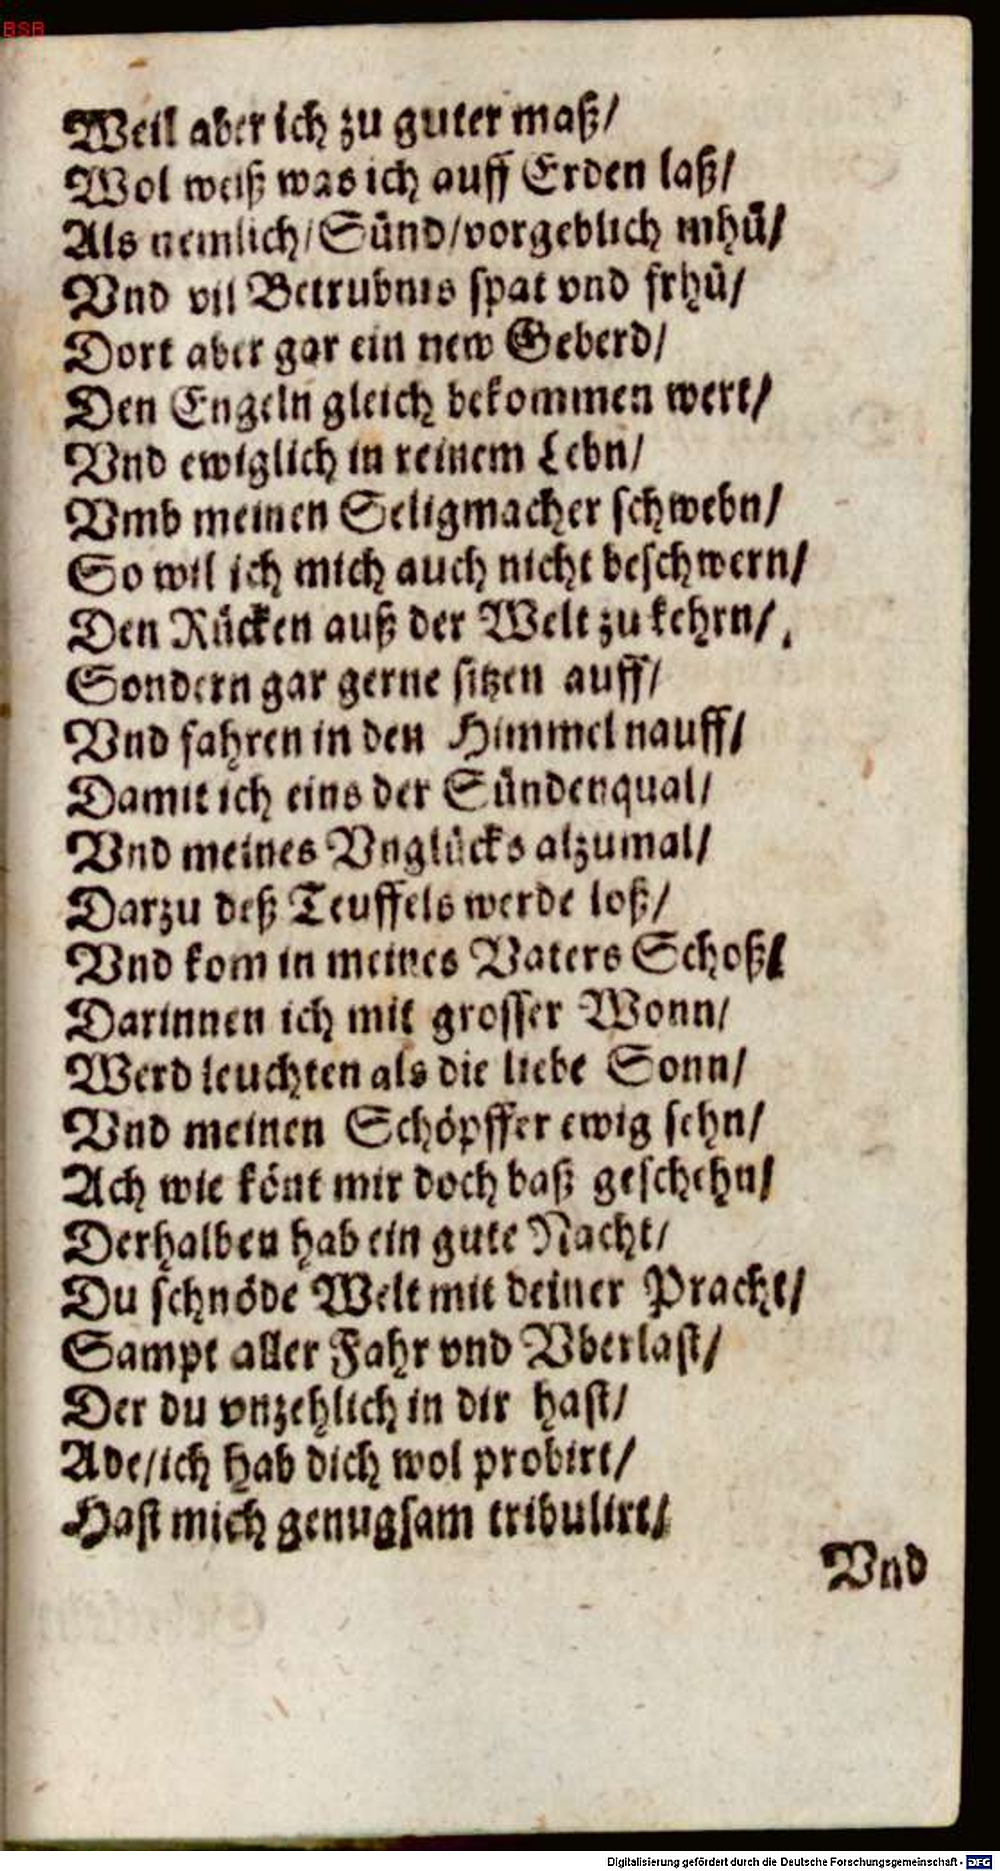 BSB
Weil aber ich zu guter maß/
Wol weiß was ich auff Erden laß/
Als nemlich/Sünd/vorgeblich mhü/
Vnd vil Betrubnis spat vnd frhü/
Dort aber gar ein new Geberd/
Den Engeln gleich bekommen wert/
Vnd ewiglich in reinem Lebn/
Vmb meinen Seligmacher schwebn/
So wil ich mich auch nicht beschwern/
Den Rücken auß der Welt zu kehrn/
Sondern gar gerne sitzen auff/
Vnd fahren in den Himmel nauff/
Damit ich eins der Sündenqual/
Vnd meines Vnglücks alzumal/
Darzu deß Teuffels werde loß/
Vnd kom in meines Vaters Schoß/
Darinnen ich mit grosser Wonn/
Werd leuchten als die liebe Sonn/
Vnd meinen Schöpffer ewig sehn/
Ach wie könt mir doch baß geschehn/
Derhalben hab ein gute Nacht/
Du schnöde Welt mit deiner Pracht/
Sampt aller Fahr vnd Vberlast/
Der du vnzehlich in dir hast/
Ade/ich hab dich wol probirt/
Hast mich genugsam tribulirt/
Vnd
Digitalisierung gefördert durch die Deutsche Forschungsgemeinschaft - DFG